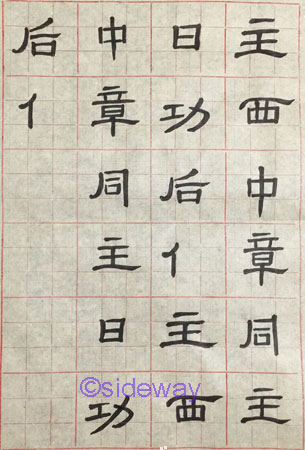 主西中章同主
日功后亻主西
中章同主日功
后亻
©sideway